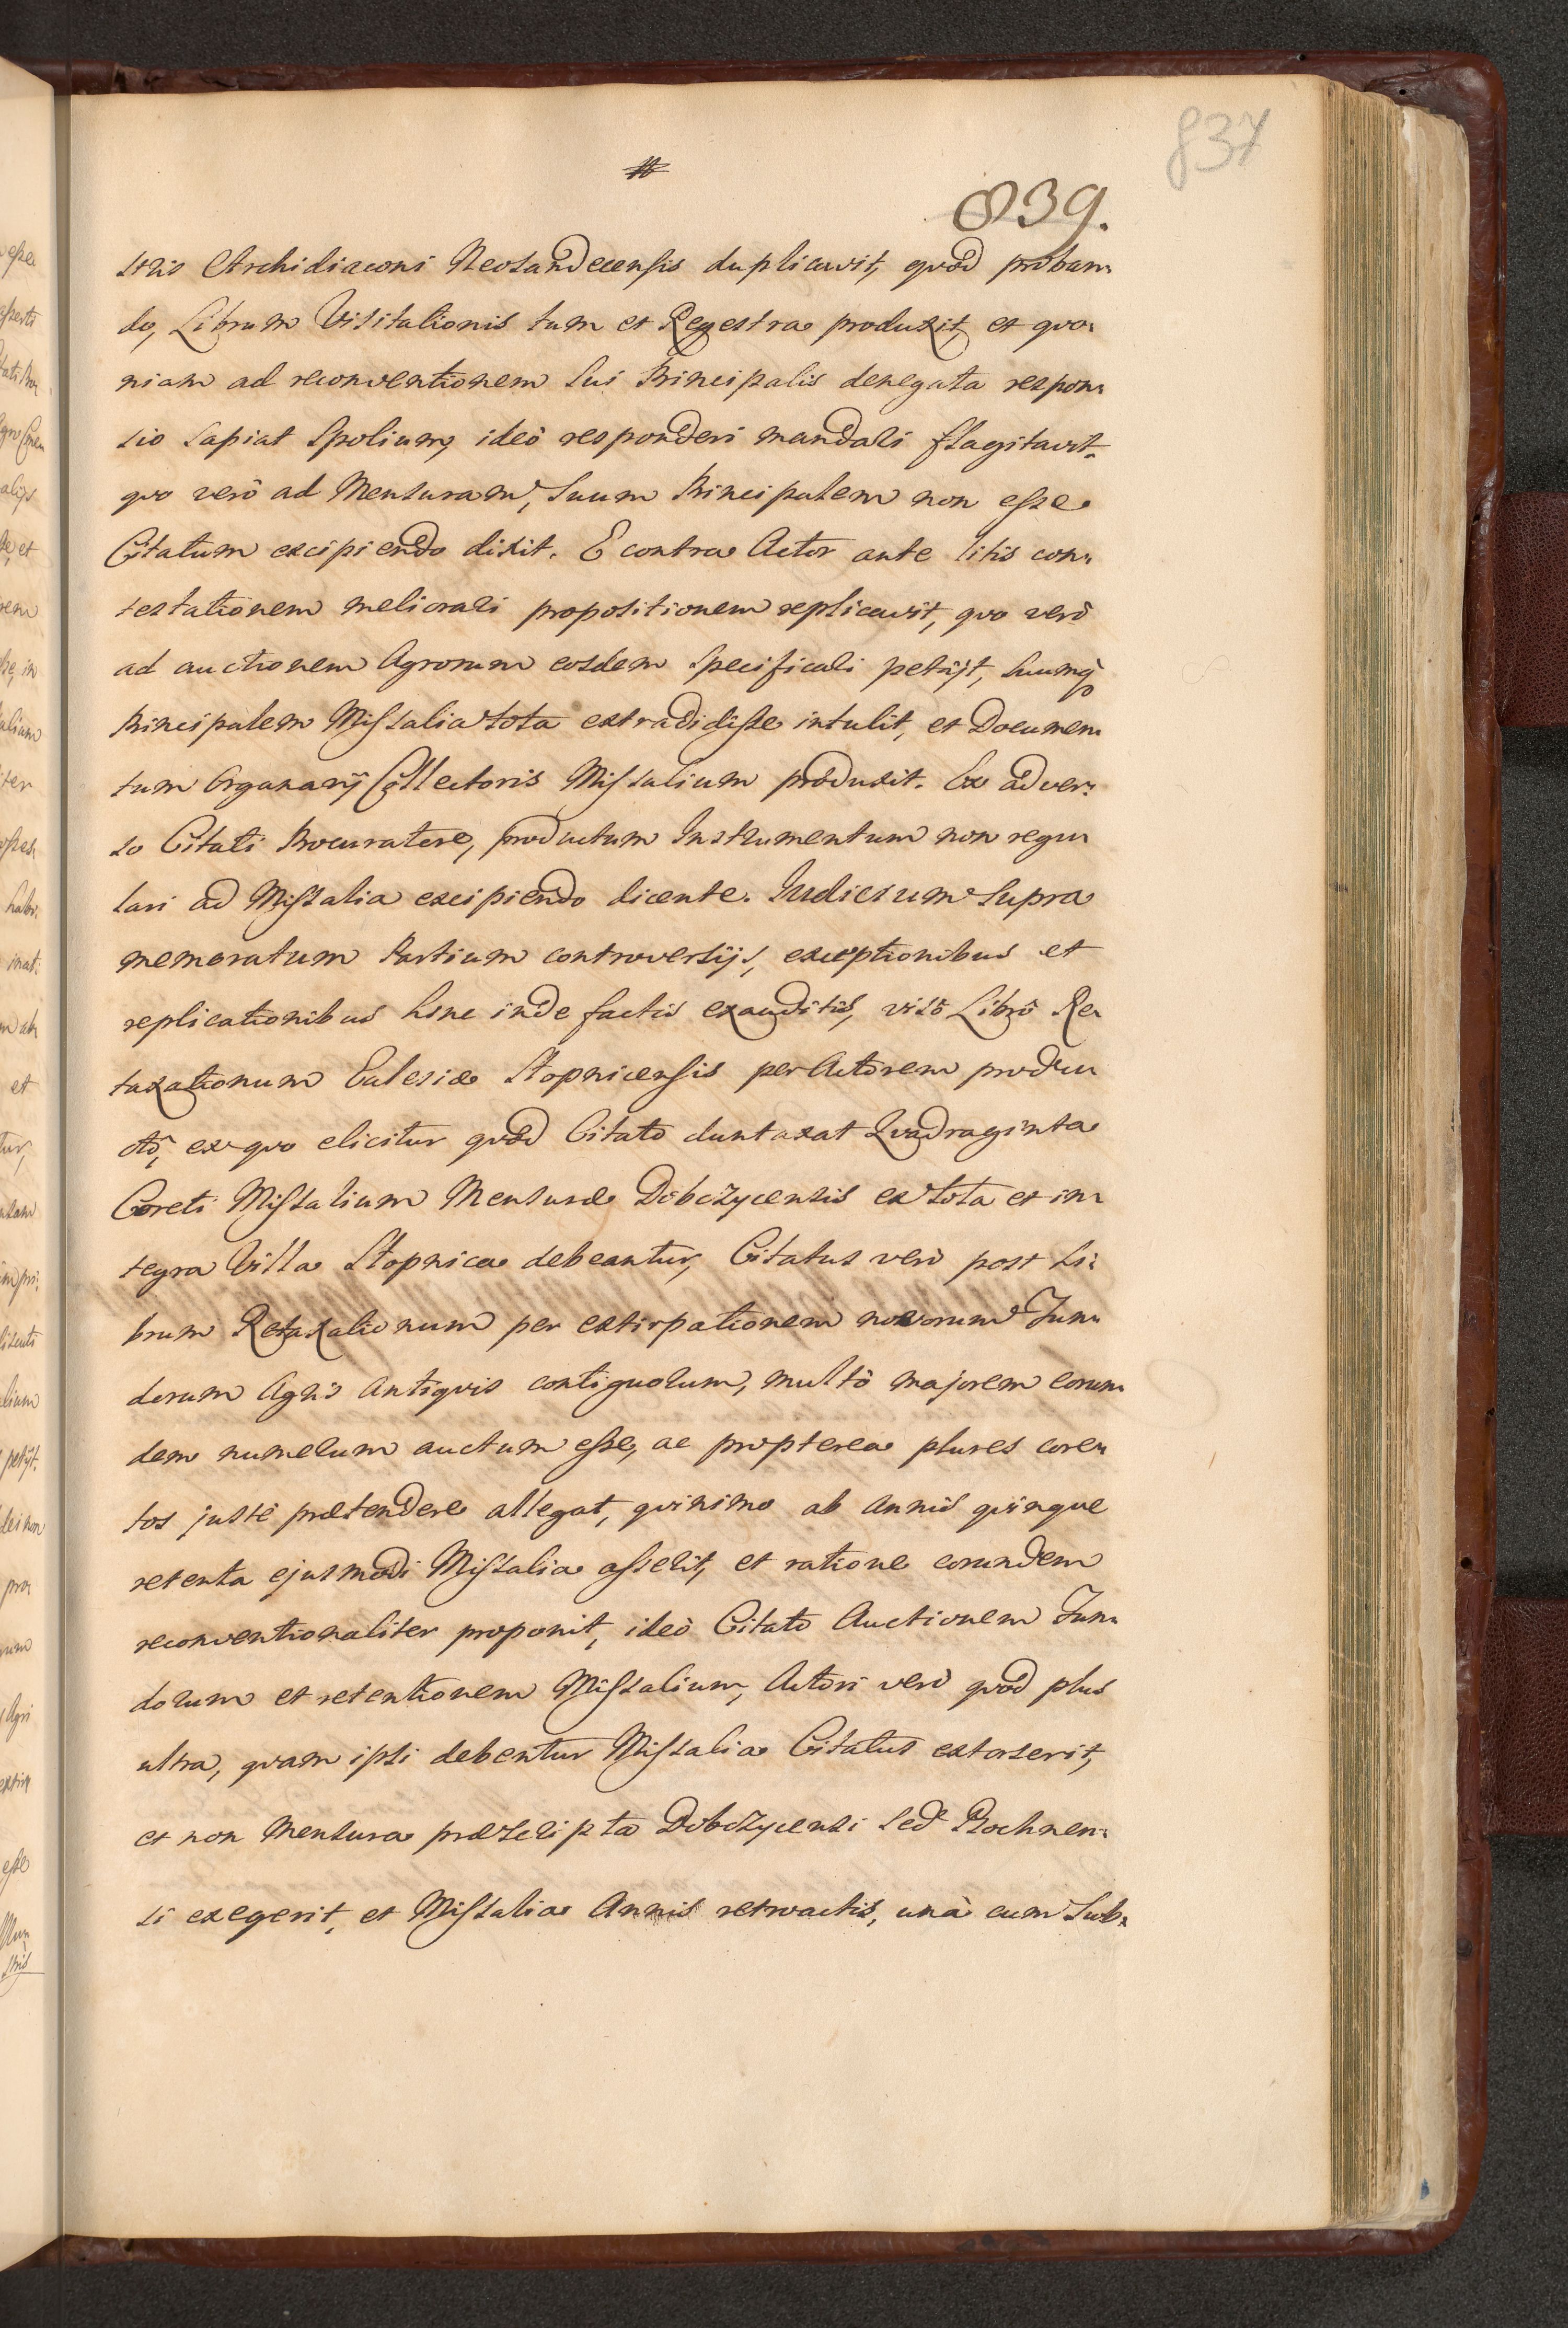 837
839.
stris Archidiaconi Neosandecensis duplicavit, quod proban„
do, Librum Visitationis tum et Regestra produxit, et quo„
niam ad reconventionem Sui Principalis denegata respon„
sio sapiat Spolium, ideò responderi mandari flagitavit.
quo verò ad Mensuram, Suum Principalem non esse
Citatum excipiendo dixit. E contra Actor ante litis con„
testationem meliorari propositionem replicavit, quo verò
ad auctionem Agrorum eosdem Specificari petijt, Suumq̃
Principalem Missalia tota extradidisse intulit, et Documen„
tum Organarij Collectoris Missalium produxit. Ex adver„
so Citati Procuratore, productum Instrumentum non regu„
lari ad Missalia excipiendo dicente. Judicium Supra
memoratum Partium controversijs, exceptionibus et
replicationibus hinc inde factis exauditis, visô Librô Re„
taxationum Eclesiæ Stopnicensis per Actorem produ„
ctô, ex quo elicitur quod Citato duntaxat Quadraginta
Coreti Missalium Mensuræ Dobczycensis ex tota et in„
tegra Villa Stopnica debeantur, Citatus verò post Li„
brum Retaxationum per extirpationem novorum Fun„
dorum Agris Antiquis contiguorum, multò majorem eorun„
dem numerum auctum esse, ac propterea plures core„
tos justè prætendere allegat, quinimo ab annis quinque
retenta ejusmodi Missalia asserit, et ratione eorundem
reconventionaliter proponit, ideò Citato Auctionem Fun„
dorum et retentionem Missalium, Actori verò quod plus
ultra, quam ipsi debentur Missalia Citatus extorserit,
et non Mensura præscripta Dobczycensi sed Bochnen„
si exegerit, et Missalia Annis retroactis, unà cum Sub„